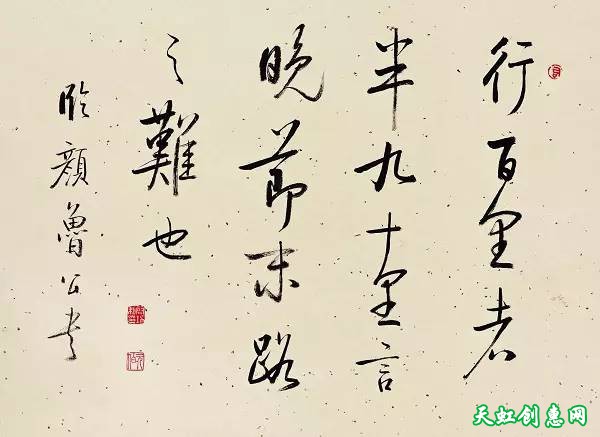 行百里者
半九十里言
晚節末路
之難也
臨顏魯公書
天虹创意网